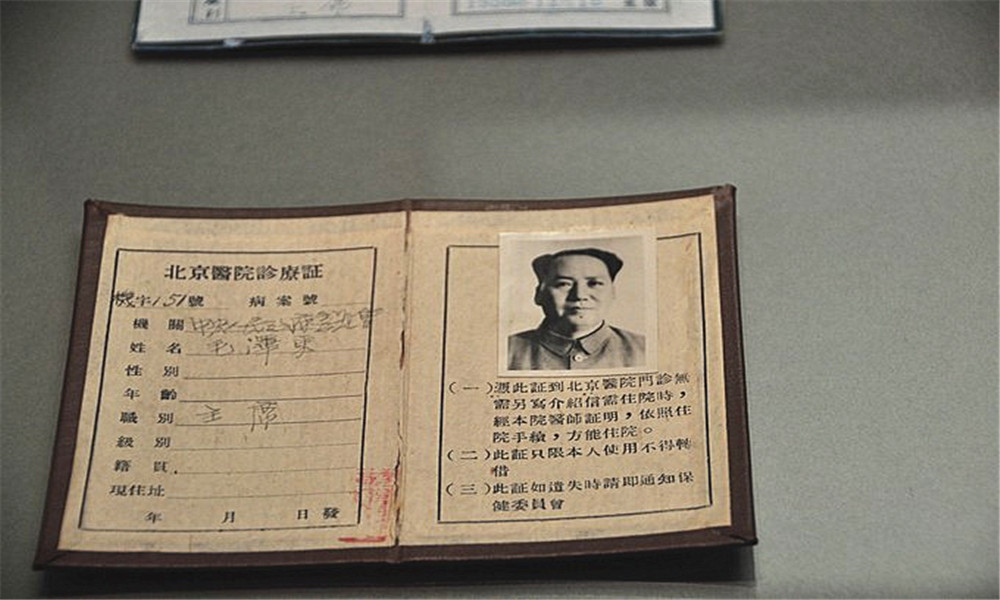 北京醫院診療証
機字151號 病案號
機關
姓名 毛澤東
性別
年齡
職別 主席
級別
籍貫
現住址
年 月 日發
(一)憑此証到北京醫院門診無
需另寫介紹信需住院時，
經本院醫師証明，依照住
院手續，方能住院。
(二)此証只限本人使用不得轉
借
(三)此証如遺失時請即通知保
健委員會